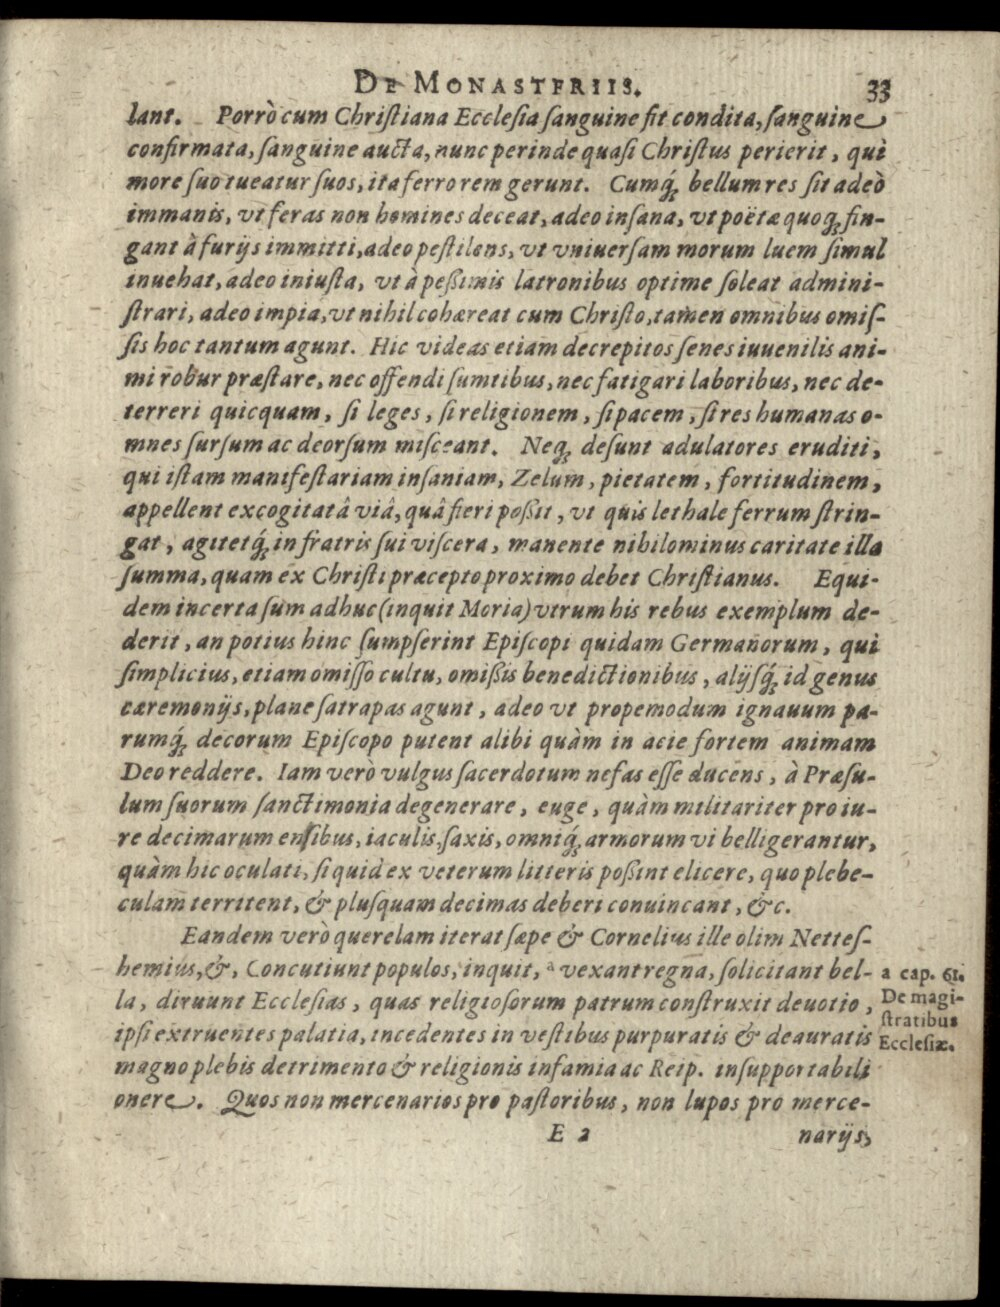 DE MONASTERIIS. 33
lant. Porrò cum Chriſtiana Eccleſia ſanguine ſit condita, ſanguine
confirmata, ſanguine aucta, nunc perinde quaſi Chriſtus perierit, qui
more ſuo tueatur ſuos, ita ferro rem gerunt. Cumq́; bellum res ſit adeò
immanis, vt feras non homines deceat, adeo inſana, vt poëtæ quoq; fin-
gant à furijs immitti, adeo peſtilens, vt vniuerſam morum luem ſimul
inuehat, adeo iniuſta, vt à peßimis latronibus optime ſoleat admini-
ſtrari, adeo impia, vt nihil cohæreat cum Chriſto, tamen omnibus omiſ-
ſis hoc tantum agunt. Hic videas etiam decrepitos ſenes iuuenilis ani-
mi robur præſtare, nec offendi ſumtibus, nec fatigari laboribus, nec de-
terreri quicquam, ſi leges, ſi religionem, ſi pacem, ſi res humanas o-
mnes ſurſum ac deorſum miſceant. Neq; deſunt adulatores eruditi,
qui iſtam manifeſtariam inſaniam, Zelum, pietatem, fortitudinem,
appellent excogitatâ viâ, quâ fieri poßit, vt quis lethale ferrum ſtrin-
gat, agitetq́; in fratris ſui viſcera, manente nihilominus caritate illa
ſumma, quam ex Chriſti præcepto proximo debet Chriſtianus. Equi-
dem incerta ſum adhuc (inquit Moria) vtrum his rebus exemplum de-
derit, an potius hinc ſumpſerint Epiſcopi quidam Germanorum, qui
ſimplicius, etiam omiſſo cultu, omißis benedictionibus, alijſq́; id genus
cæremonijs, plane ſatrapas agunt, adeo vt propemodum ignauum pa-
rumq́; decorum Epiſcopo putent alibi quàm in acie fortem animam
Deo reddere. Iam verò vulgus ſacerdotum nefas eſſe ducens, à Præſu-
lum ſuorum ſanctimonia degenerare, euge, quàm militariter pro iu-
re decimarum enſibus, iaculis, ſaxis, omniq́; armorum vi belligerantur,
quàm hic oculati, ſi quid ex veterum litteris poßint elicere, quo plebe-
culam territent, & pluſquam decimas deberi conuincant, &c.
Eandem verò querelam iterat ſæpe & Cornelius ille olim Netteſ-
hemius, &, Concutiunt populos, inquit, ᵃ vexant regna, ſolicitant bel-
la, diruunt Eccleſias, quas religioſorum patrum conſtruxit deuotio,
ipſi extruentes palatia, incedentes in veſtibus purpuratis & deauratis
magno plebis detrimento & religionis infamia ac Reip. inſupportabili
onere. Quos non mercenarios pro paſtoribus, non lupos pro merce-
E 2 narijs,
a cap. 61.
De magi-
ſtratibus
Eccleſiæ.